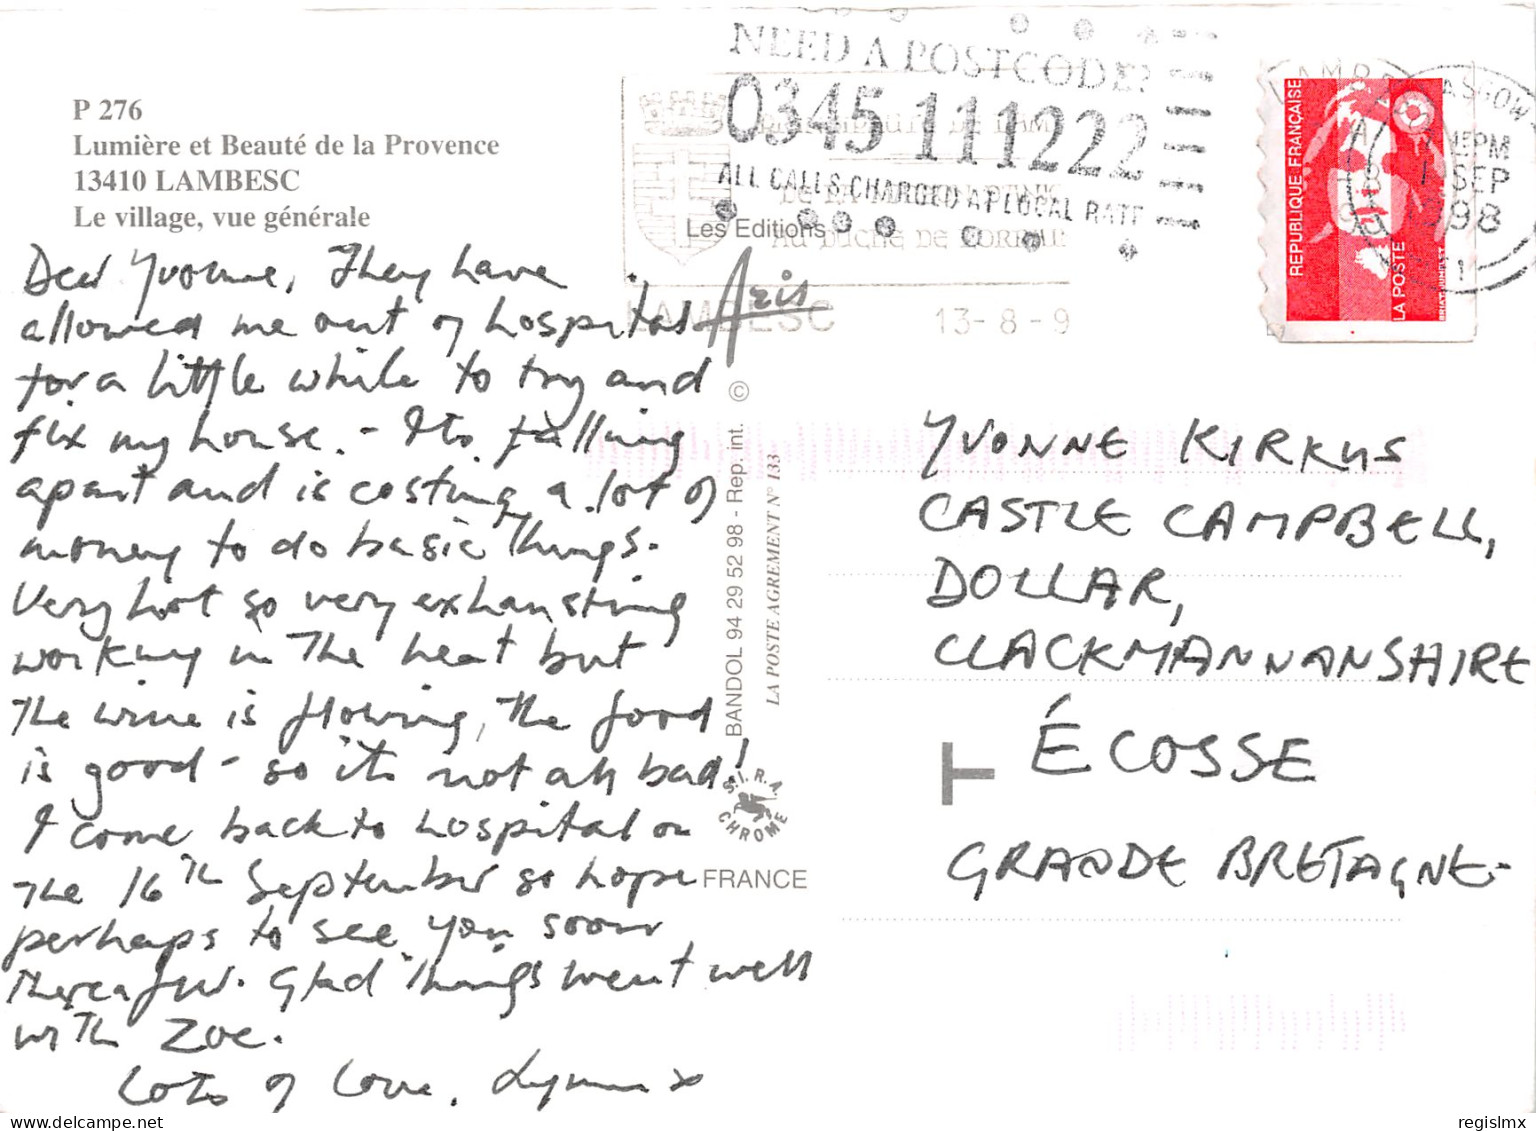 P 276
Lumière et Beauté de la Provence
13410 LAMBESC
Le village, vue générale
Dear Yvonne, They have
allowed me out of hospital
for a little while to try and
fix my house. - Its falling
apart and is costing a lot of
money to do basic things.
Very hot so very exhausting
working in the heat but
the wine is flowing, the food
is good - so its not all bad!
I come back to hospital on
the 16th September so hope
perhaps to see you soon
thereafter. Glad things went well
with Zoe.
Lots of love, x
NEED A POSTCODE?
0345 111222
ALL CALLS CHARGED AT LOCAL RATE
AU DUCHE DE
LAMBESC 13-8-9
Les Editions
Aris
BANDOL 94 29 52 98 - Rep. int. ©
LA POSTE AGREMENT N° 133
S.I.R.A.
CHROME
FRANCE
REPUBLIQUE FRANÇAISE
LA POSTE
PM
1 SEP
1998
YVONNE KIRKUS
CASTLE CAMPBELL,
DOLLAR,
CLACKMANNANSHIRE
ÉCOSSE
T
GRANDE BRETAGNE-
regislmx